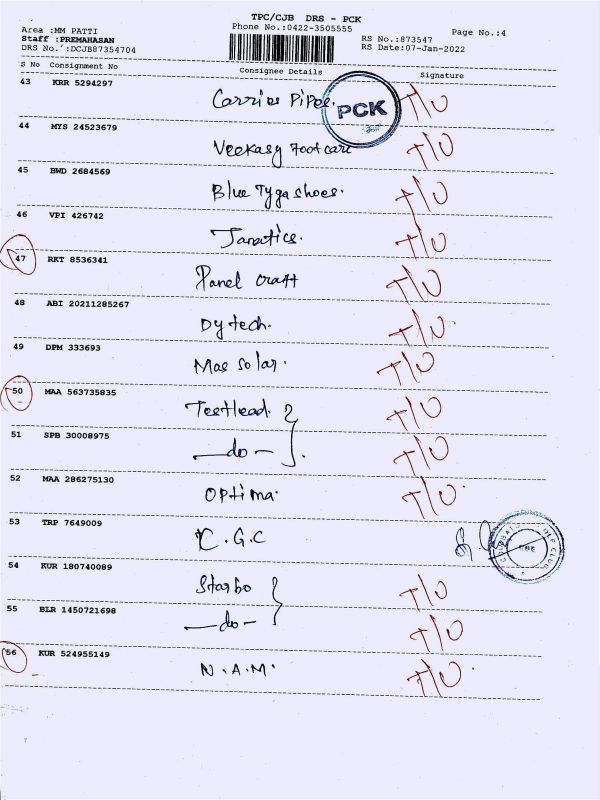 TPC/CJB DRS - PCK
Area :MM PATTI Phone No.:0422-3505555 Page No.:4
Staff :PREMAHASAN RS No.:873547
DRS No.:DCJB87354704 RS Date:07-Jan-2022
S No Consignment No Consignee Details Signature
43 KRR 5294297
Carrier Pipes. PCK T/U
44 MYS 24523679
Veekasy Footcare T/U
45 BWD 2684569
Blue Tyga shoes. T/U
46 VPI 426742
Janatics. T/U
47 RKT 8536341
Panel craft T/U
48 ABI 20211285267
Dytech. T/U
49 DPM 333693
Mas solar. T/U
50 MAA 563735835
Testlead. T/U
51 SPB 30008975
—do— T/U
52 MAA 286275130
Optima. T/U
53 TRP 7649009
C.G.C
54 KUR 180740089
Starbo T/U
55 BLR 1450721698
—do— T/U
56 KUR 524955149
N.A.M. T/U